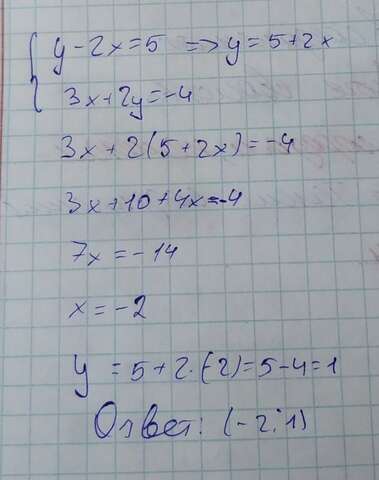 y-2x=5 => y=5+2x
3x+2y=-4
3x+2(5+2x)=-4
3x+10+4x=-4
7x=-14
x=-2
y=5+2·(-2)=5-4=1
Ответ: (-2;1)